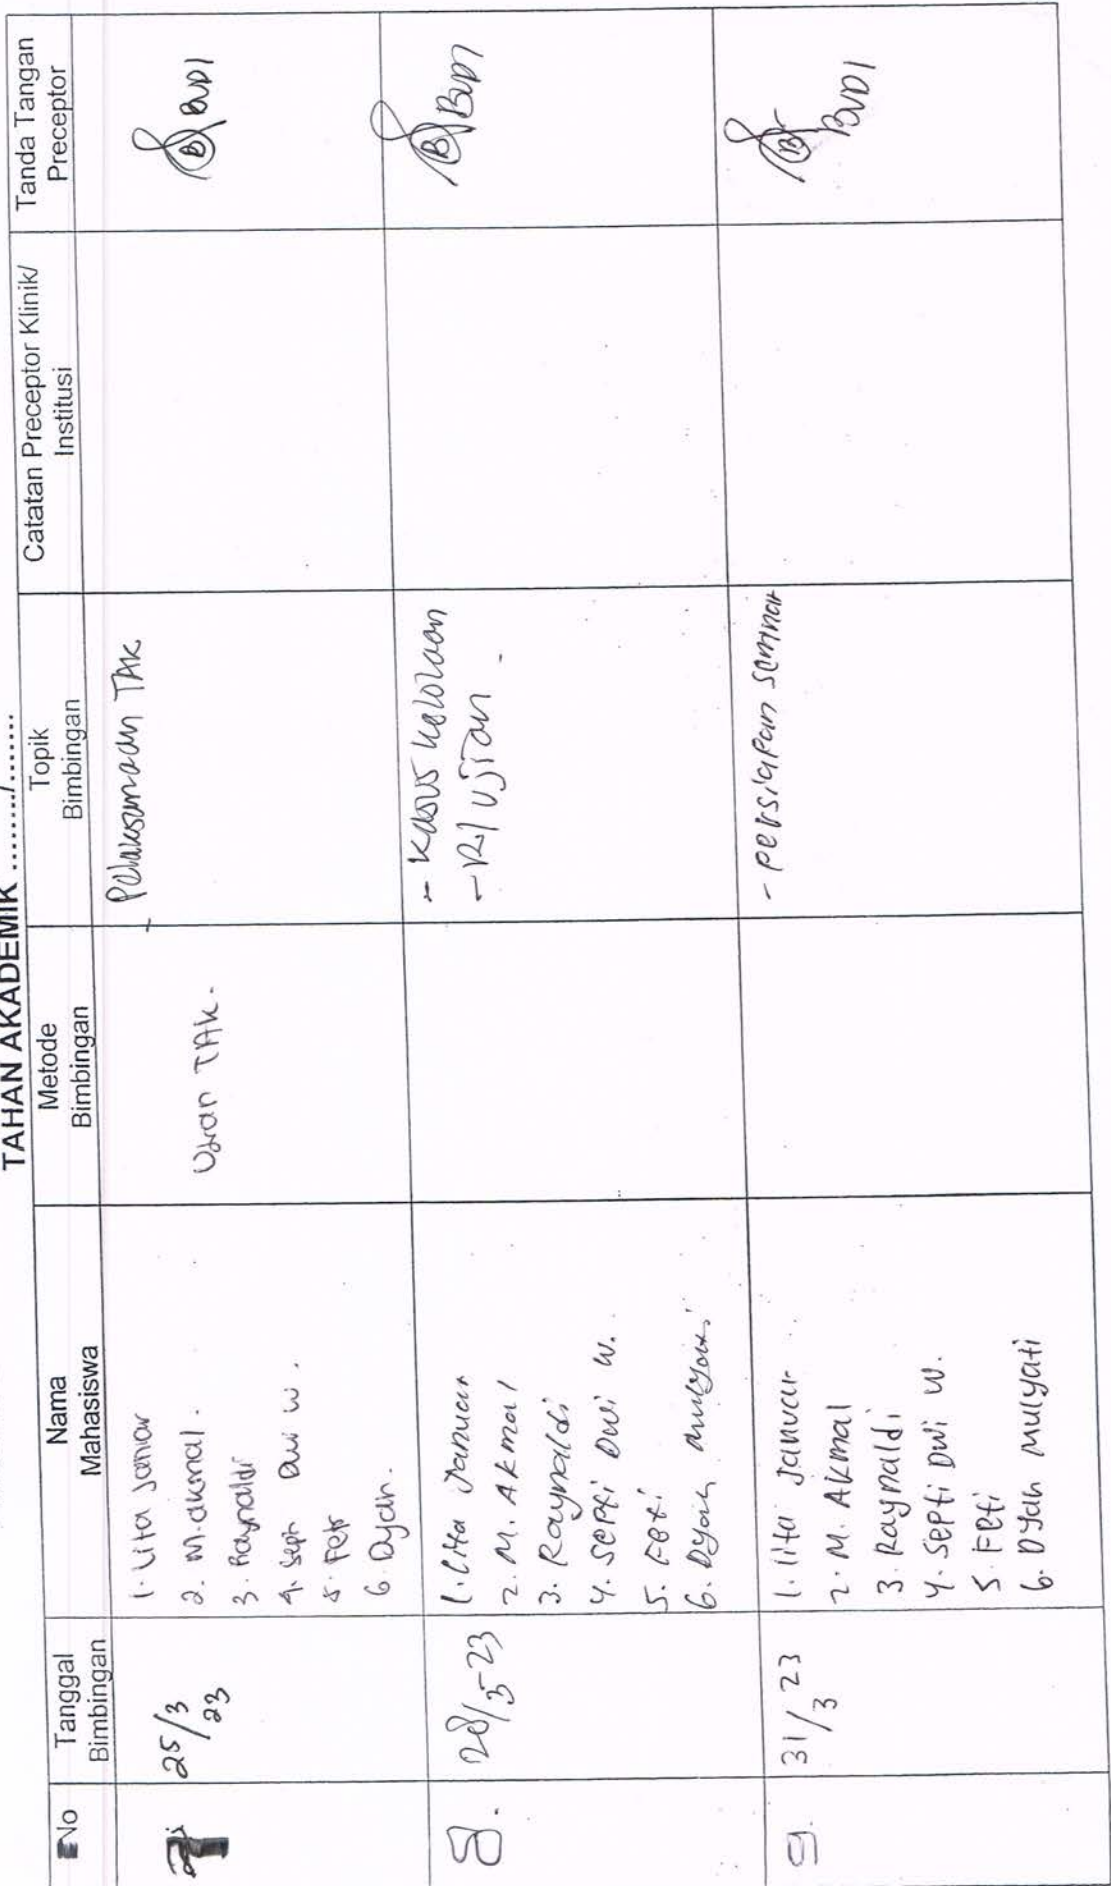 TAHAN AKADEMIK ........./.......
No
Tanggal
Bimbingan
Nama
Mahasiswa
Metode
Bimbingan
Topik
Bimbingan
Catatan Preceptor Klinik/
Institusi
Tanda Tangan
Preceptor
7
25/3
23
1. Lita Januar
2. M. akmal.
3. Raynaldi
4. Septi Dwi W.
5. Feti
6. Dyah.
Ujian TAK.
- Pelaksanaan TAK
BUDI
8.
28/3-23
1. Lita Januar
2. M. Akmal
3. Raynaldi
4. Septi Dwi W.
5. Feti
6. Dyah mulyati
- Kasus kelolaan
- Ujian
BUDI
9.
31/3 23
1. lita Januar
2. M. Akmal
3. Raynaldi
4. Septi Dwi W.
5. Feti
6. Dyah mulyati
- persiapan seminar
BUDI